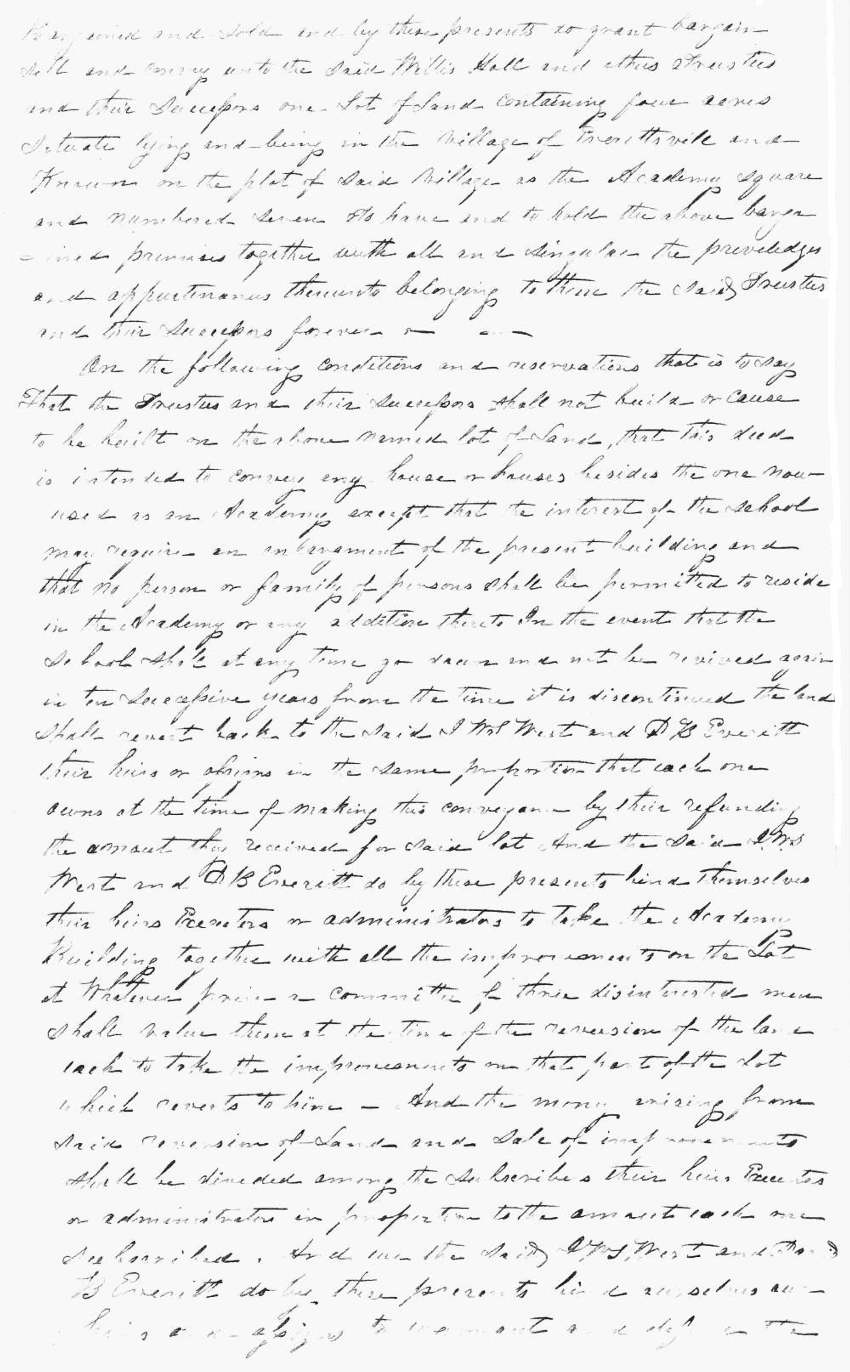 Bargained and Sold and by these presents do grant bargain
Sell and convey unto the Said Willis Hall and others Trustees
and their Successors one Lot of Land Containing four acres
Situate lying and being in the Village of Everettsville and
Known on the plat of Said Village as the Academy Square
and numbered Seven To have and to hold the above barga
-ined premises together with all and Singular the previledges
and appurtenances thereunto belonging to them the Said Trustees
and their Successors forever
On the following conditions and reservations that is to say
That the Trustees and their Successors shall not build or cause
to be built on the above named lot of Land, that this deed
is intended to convey any house or houses besides the one now
used as an Academy except that the interest of the School
may require an enlargement of the present building and
that no person or family of persons shall be permitted to reside
in the Academy or any addition thereto In the event that the
School shall at any time go down and not be revived again
in ten Successive years from the time it is discontinued the land
Shall revert back to the Said West and D B Everitt
their heirs or assigns in the same proportion that each one
owns at the time of making this conveyance by their refunding
the amount they received for said lot And the Said
West and D B Everitt do by these presents bind themselves
their heirs Executors or administrators to take the Academy
Building together with all the improvements on the Lot
at Whatever price a committee of three disinterested men
shall value them at the time of the reversion of the land
each to take the improvements on that part of the Lot
which reverts to him - And the money arising from
said reversion of Land and Sale of improvements
shall be divided among the Subscribers their heirs Executors
or administrators in proportion to the amount each one
Subscribed. And we the Said West and
B Everitt do by these presents bind ourselves our
heirs and assigns to warrant and defend the